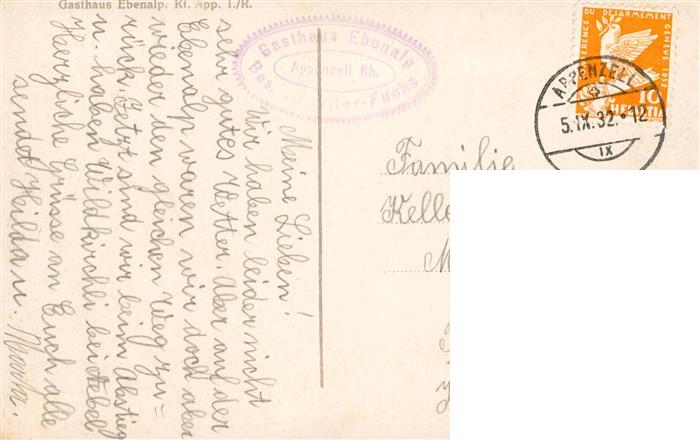 Gasthaus Ebenalp. Kt. App. I./R.
Meine Lieben!
Wir haben leider nicht
sehr gutes Wetter. Aber auf der
Ebenalp waren wir doch aber
wieder den gleichen Weg zu=
rück. Jetzt sind wir beim Abstieg
u. haben Wildkirchli bei Nebel
Herzliche Grüsse an Euch alle
sendet Hilda u.
Gasthaus Ebenalp
Appenzell Rh.
Bes.
CONFERENCE DU DESARMEMENT GENEVE 1932
HELVETIA
10
APPENZELL
5.IX.32.-12
IX
Familie
Kelle
M